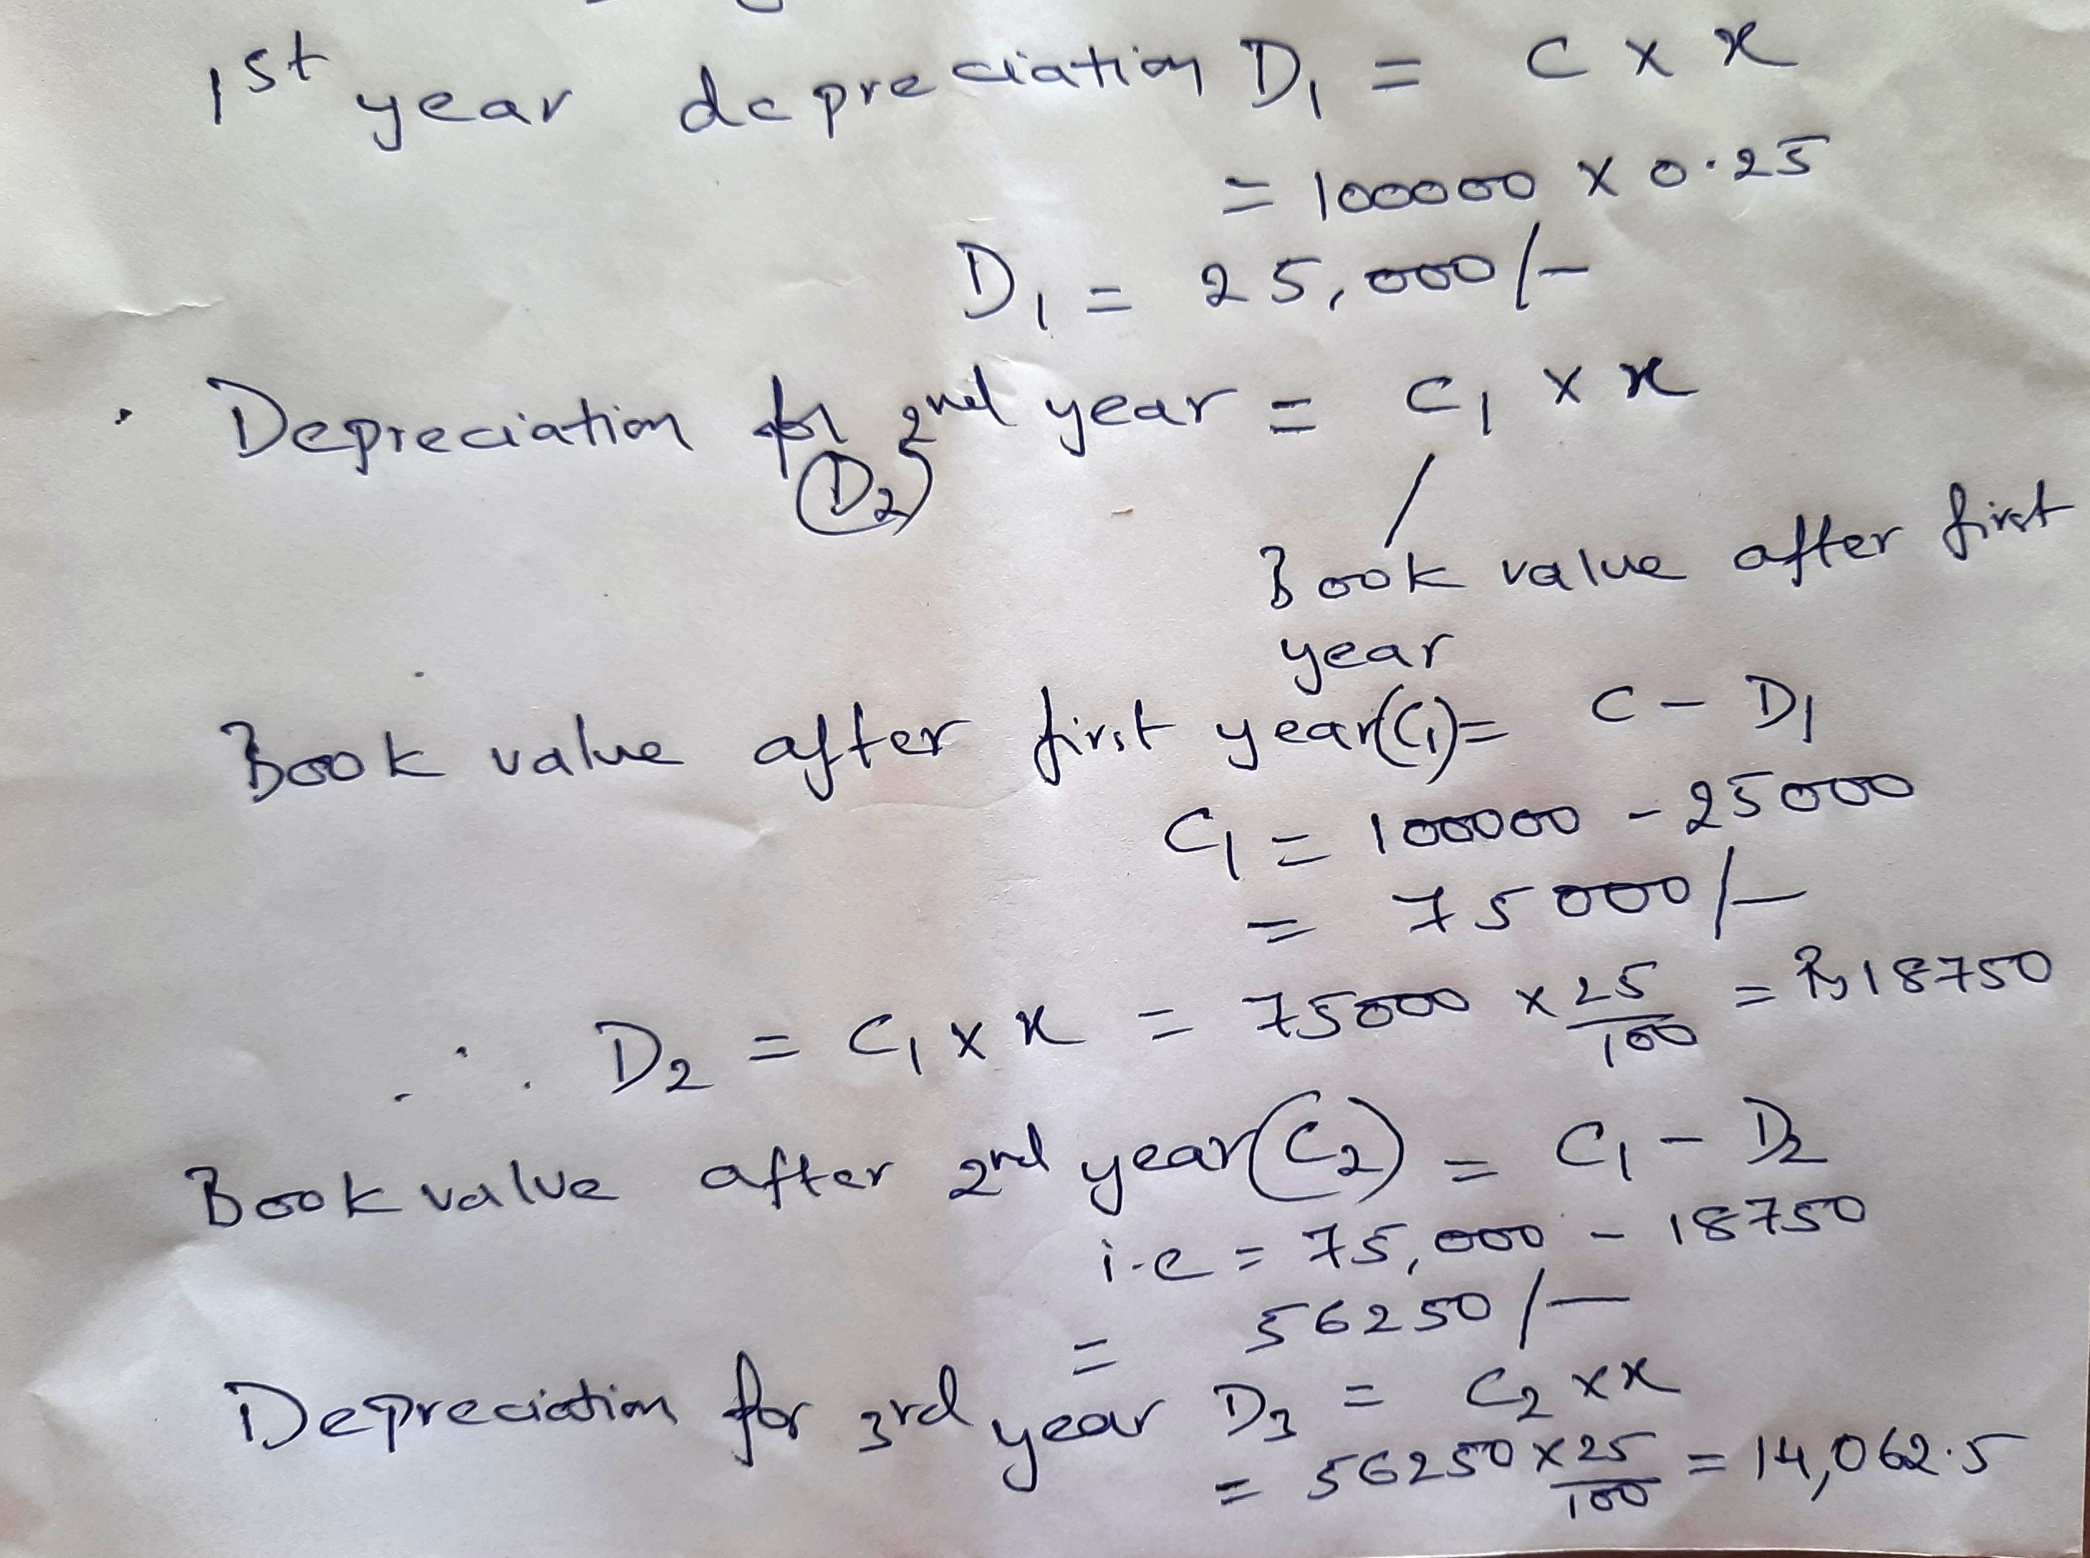 1st year depreciation D1 = C × x
= 100000 × 0.25
D1 = 25,000/-
Depreciation for 2nd year = C1 × x
(D2)
Book value after first
year
Book value after first year(C1) = C - D1
C1 = 100000 - 25000
= 75000/-
∴ D2 = C1 × x = 75000 × 25/100 = Rs 18750
Book value after 2nd year (C2) = C1 - D2
i.e = 75,000 - 18750
= 56250/-
Depreciation for 3rd year D3 = C2 × x
= 56250 × 25/100 = 14,062.5